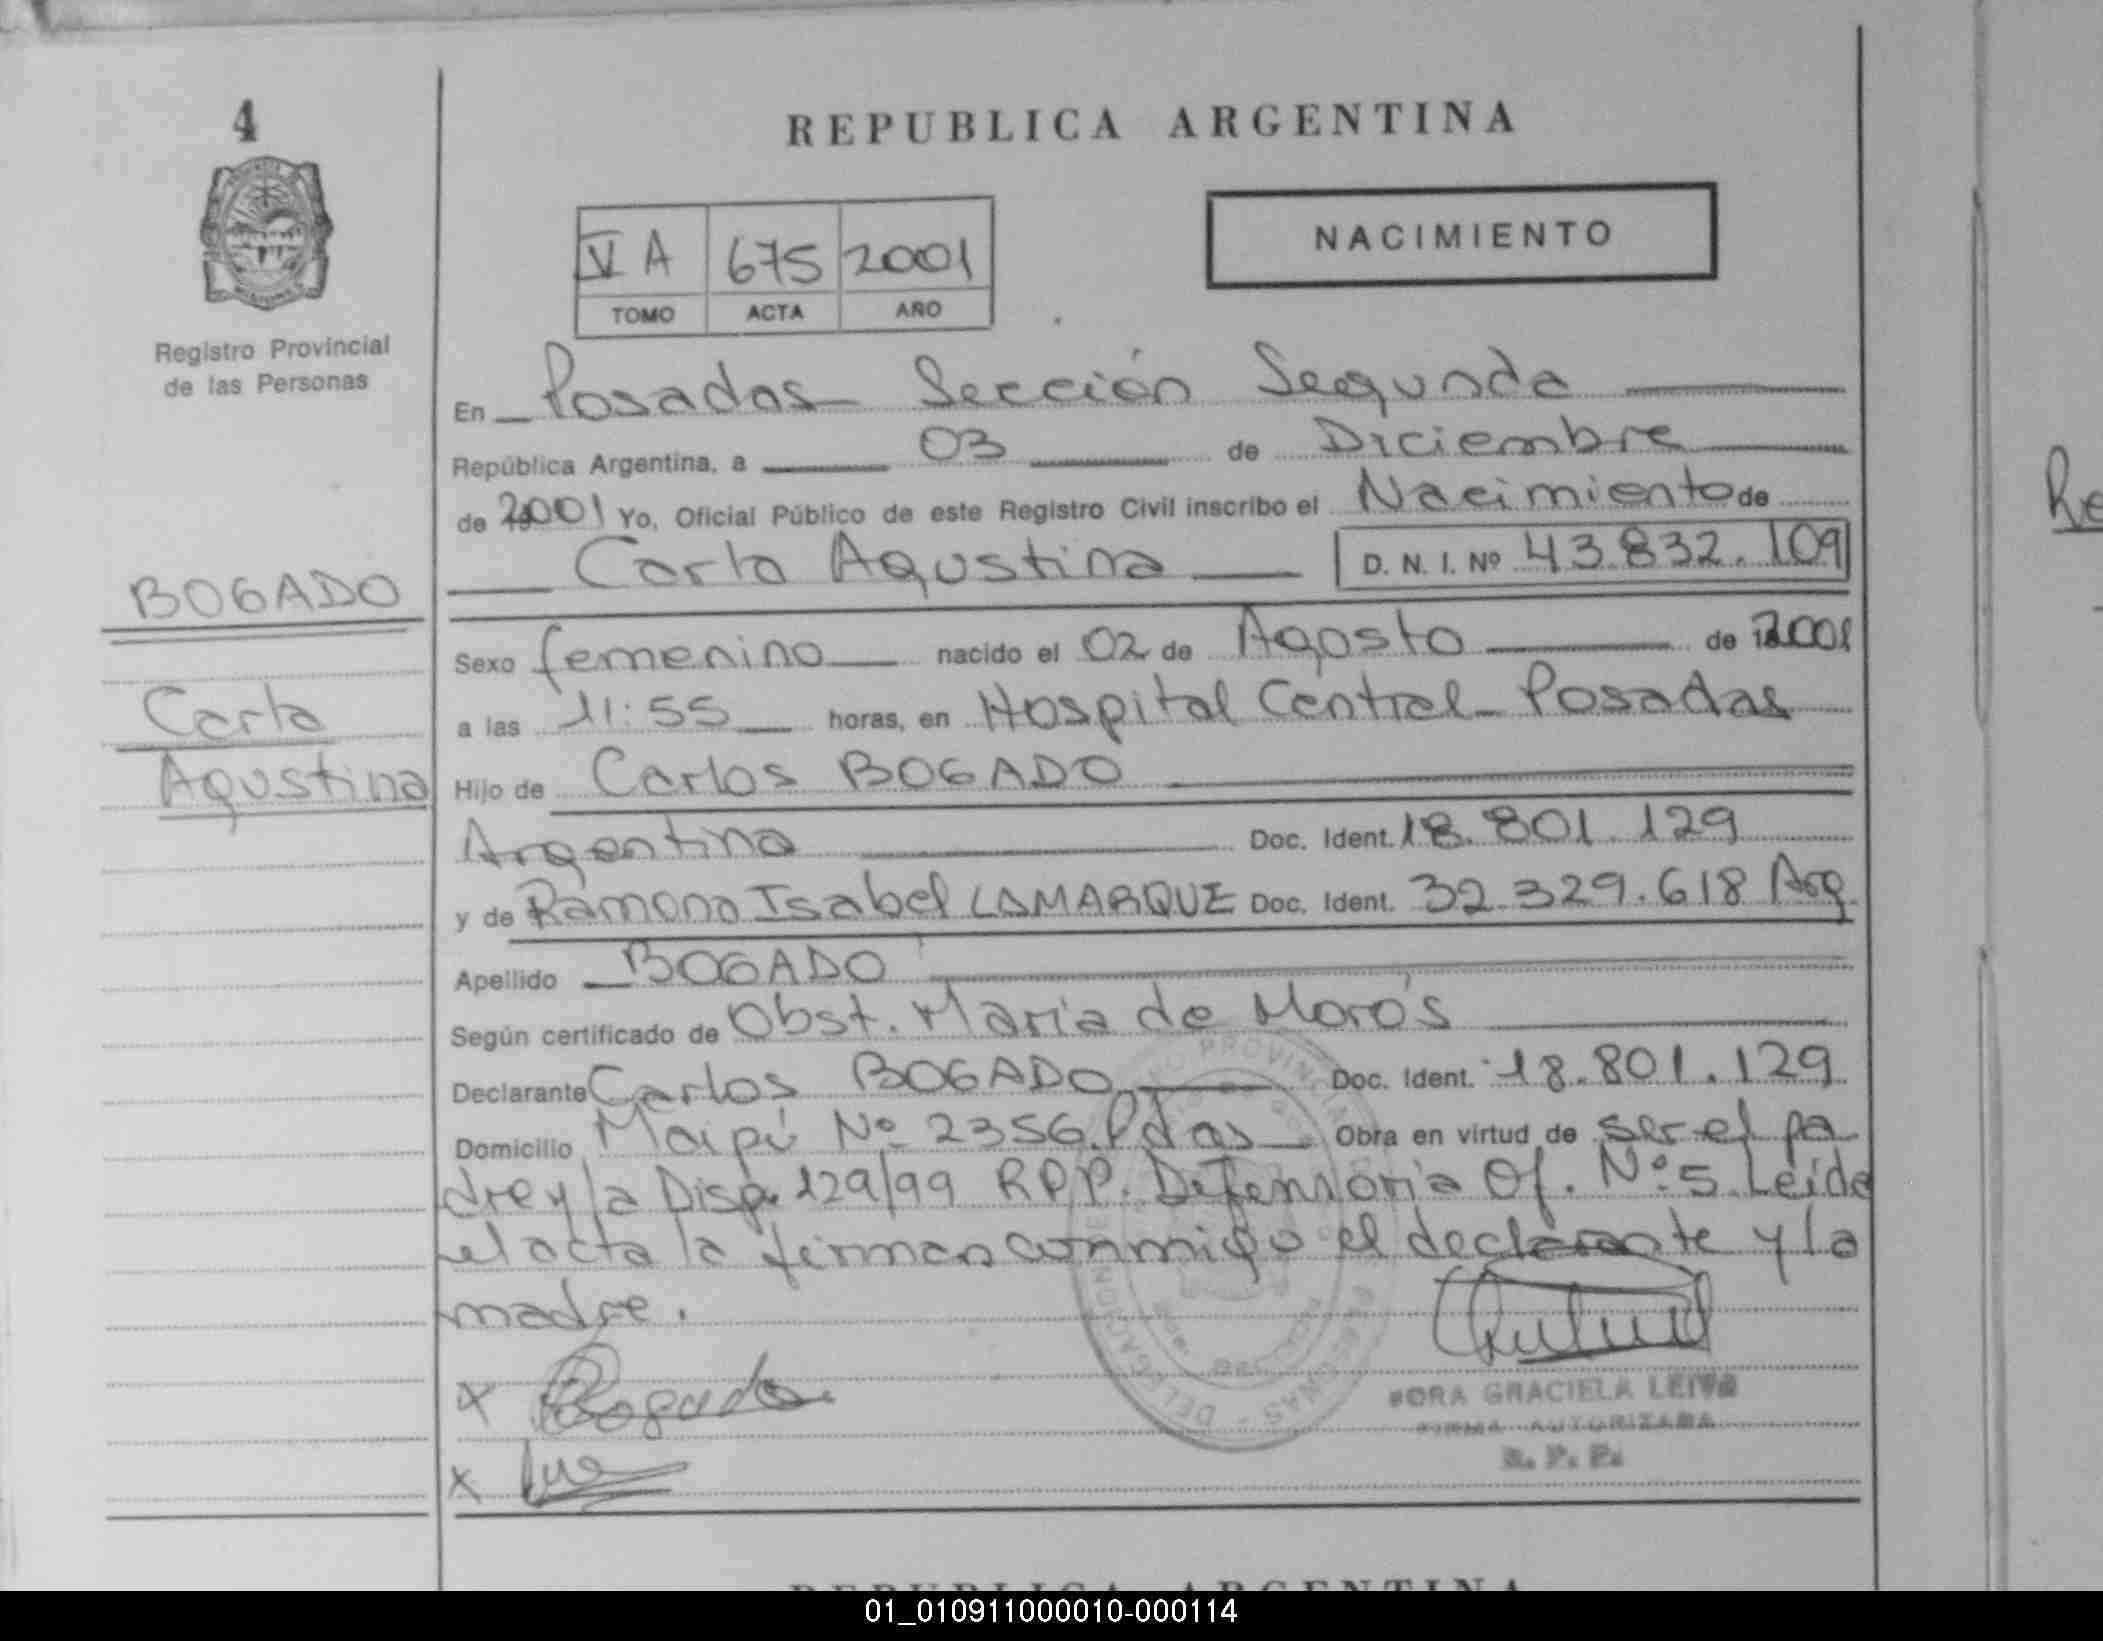 4
REPUBLICA ARGENTINA
NACIMIENTO
V A 675 2001
TOMO ACTA AÑO
Registro Provincial
de las Personas
En Posadas Sección Segunda
República Argentina, a 03 de Diciembre
de 2001 Yo, Oficial Público de este Registro Civil inscribo el Nacimiento de
Carla Agustina D. N. I. Nº 43.832.109
BOGADO
Carla
Agustina
Sexo femenino nacido el 02 de Agosto de 2001
a las 11:55 horas, en Hospital Central Posadas
Hijo de Carlos BOGADO
Argentina Doc. Ident. 18.801.129
y de Ramona Isabel LAMARQUE Doc. Ident. 32.329.618 Arg.
Apellido BOGADO
Según certificado de Obst. María de Moro's
Declarante Carlos BOGADO Doc. Ident. 18.801.129
Domicilio Maipú Nº 2356 Pdas Obra en virtud de ser el pa
dre y la Disp. 129/99 RPP. Defensoria Of. Nº 5 Leida
el acta la firman conmigo el declarante y la
madre.
x Bogado
x
GRACIELA
FIRMA AUTORIZADA
R. P. P.
REPUBLICA ARGENTINA
01_010911000010-000114